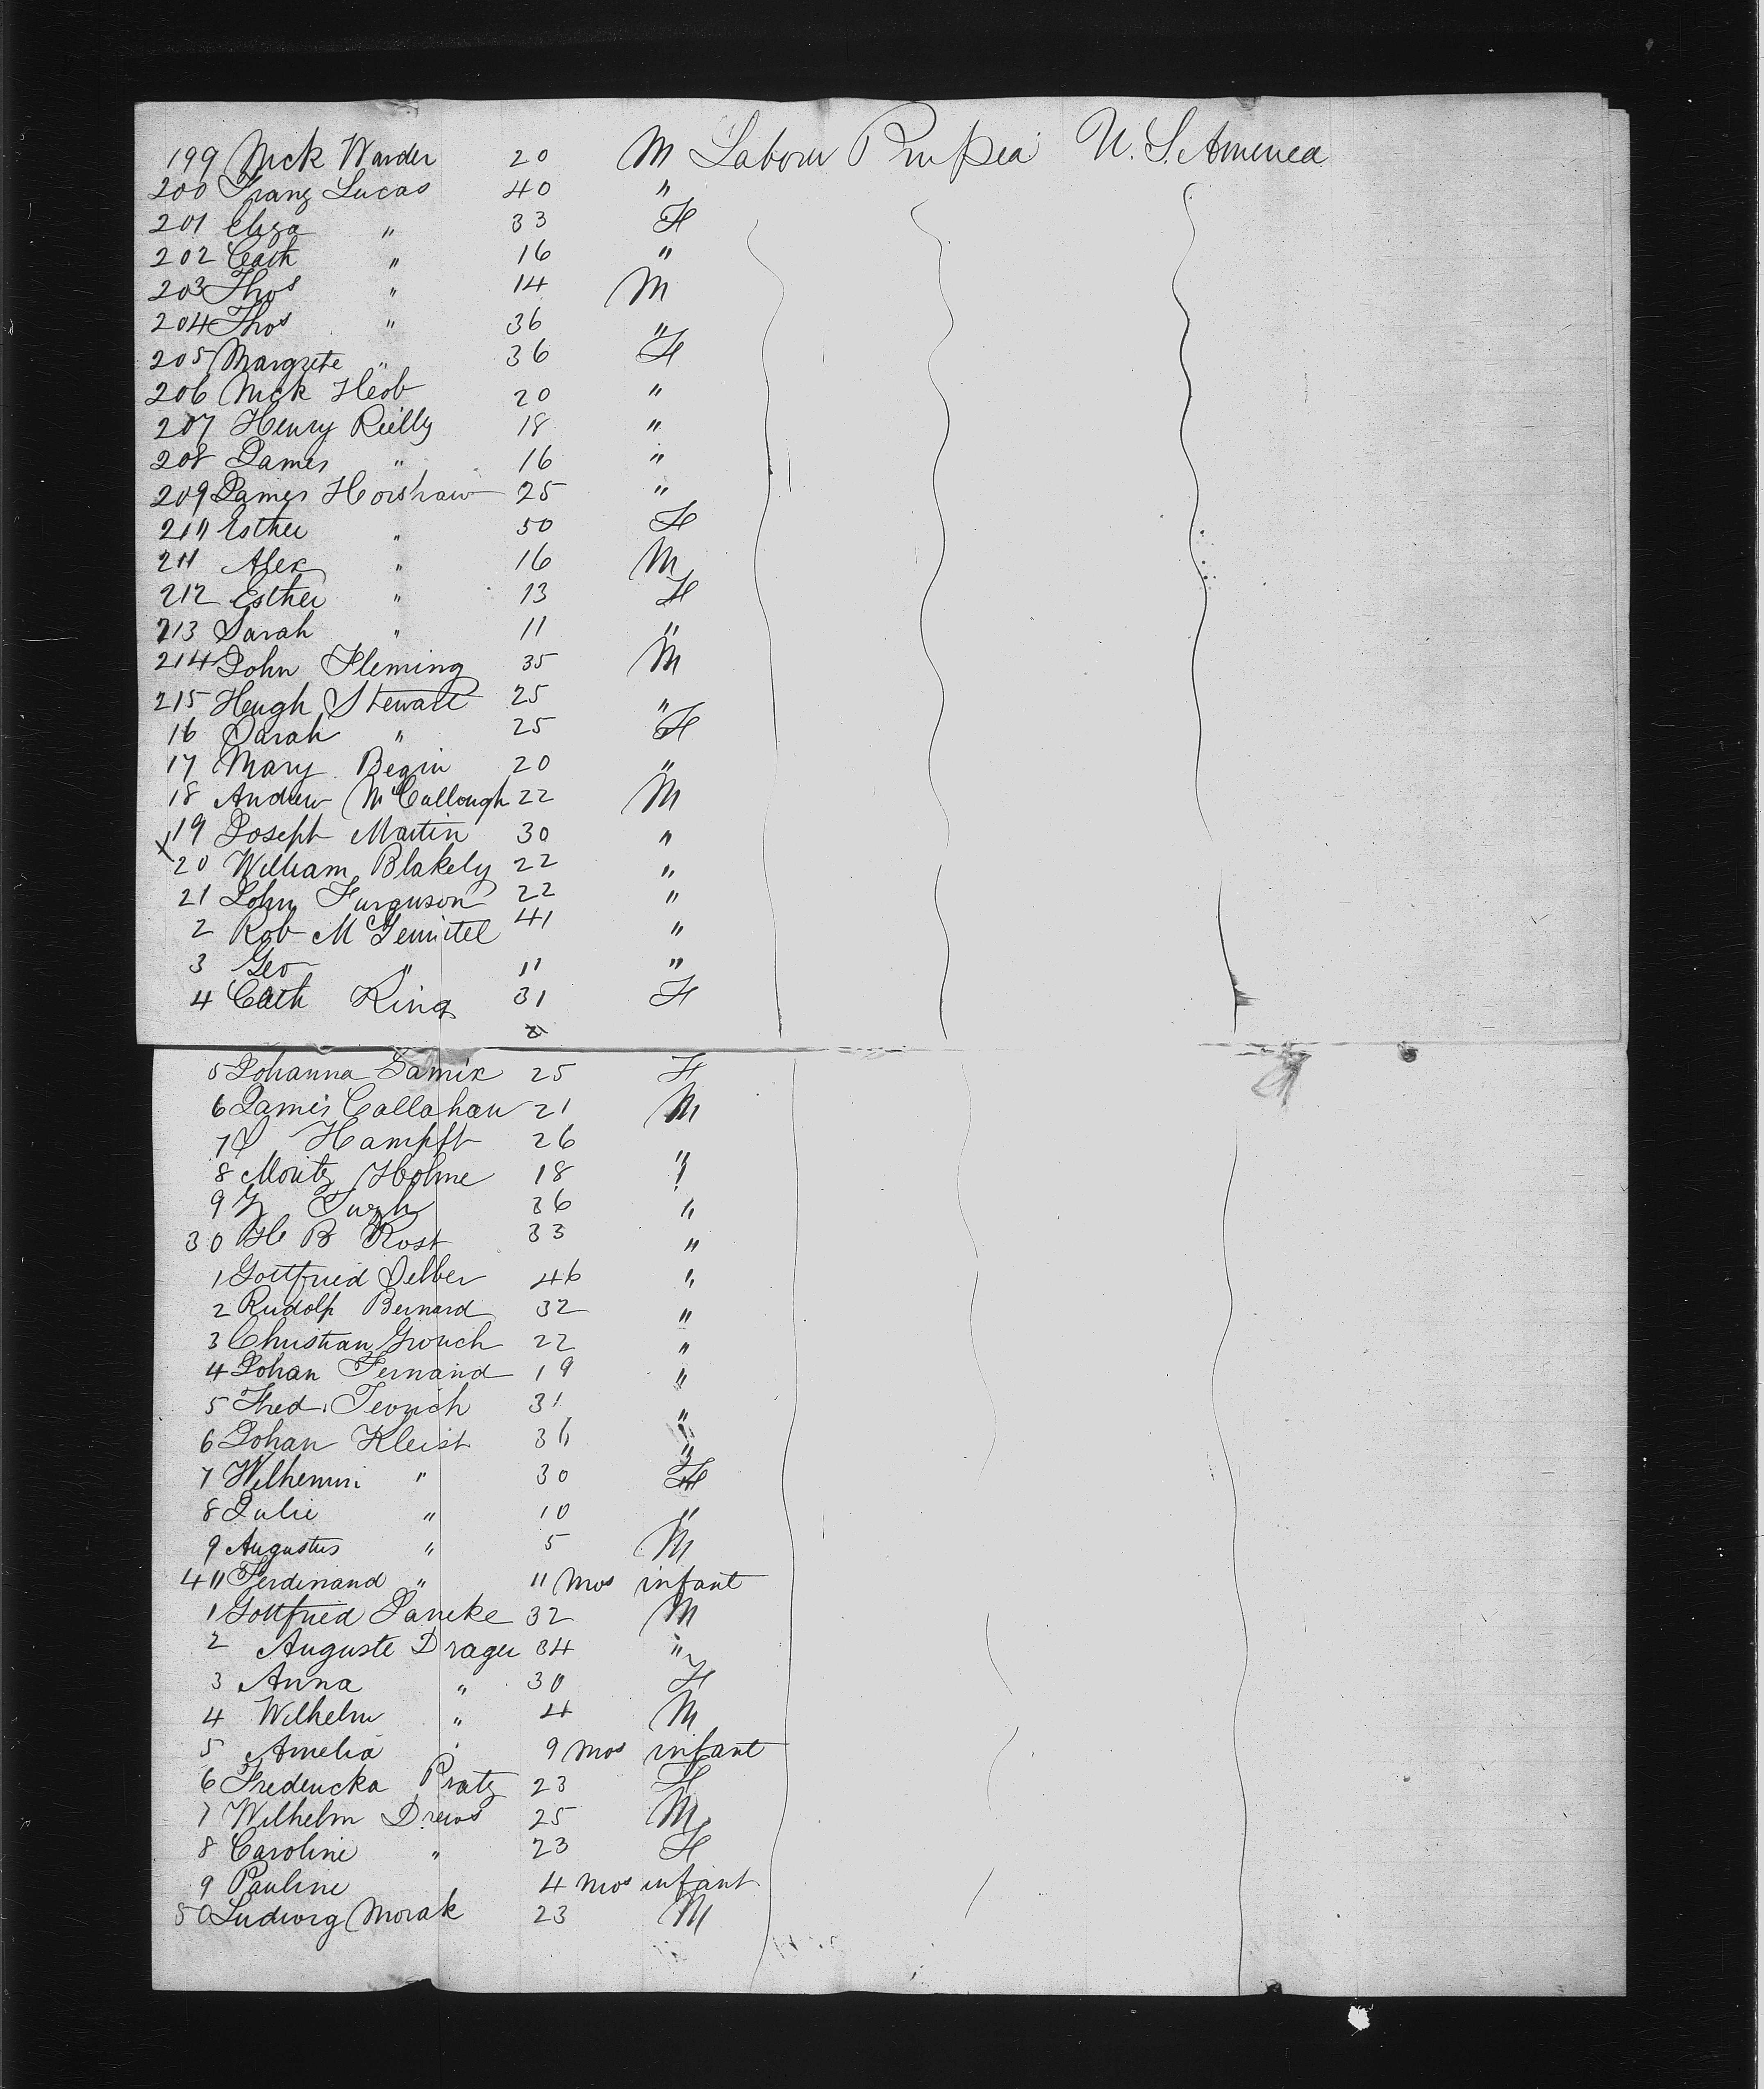 199 Nick Warder 20 M Labour Prussia U. S. America
200 Franz Lucas 40 "
201 Eliza " 33 F
202 Cath " 16 "
203 Thos " 14 M
204 Thos " 36 "
205 Margrete " 36 F
206 Nick Heob 20 "
207 Henry Reilly 18 "
208 James " 16 "
209 James Horshaw 25 "
210 Esther " 50 F
211 Alex " 16 M
212 Esther " 13 F
213 Sarah " 11 "
214 John Fleming 35 M
215 Hugh Stewart 25 "
16 Sarah " 25 F
17 Mary Begin 20 "
18 Andrew McCullough 22 M
19 Joseph Martin 30 "
20 William Blakely 22 "
21 John Furguson 22 "
2 Rob 41 "
3 Geo " 11 "
4 Cath King 31 F
5 Johanna 25 F
6 James Callahan 21 M
7 Hampft 26
8 Moritz Holme 18 "
9 36 "
30 H B Rost 33 "
1 Gottfried Selber 46 "
2 Rudolph Bernard 32 "
3 Christian Grouch 22 "
4 Johan Fernand 19 "
5 Fred. 31 "
6 Johan Kleist 36 "
7 Wilhemin " 30 F
8 Julie " 10 "
9 Augustus " 5 M
40 Ferdinand " 11 mos infant
1 Gottfried Jancke 32 M
2 Auguste Drager 34 "
3 Anna " 30 F
4 Wilhelm " 4 M
5 Amelia " 9 mos infant
6 Fredericka Pratz 23 F
7 Wilhelm Drews 25 M
8 Caroline " 23 F
9 Pauline 4 mos infant
50 Ludwig Morak 23 M